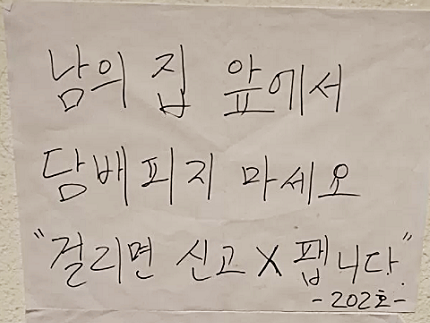 남의 집 앞에서
담배피지 마세요
"걸리면 신고 X 팹니다."
-202호-